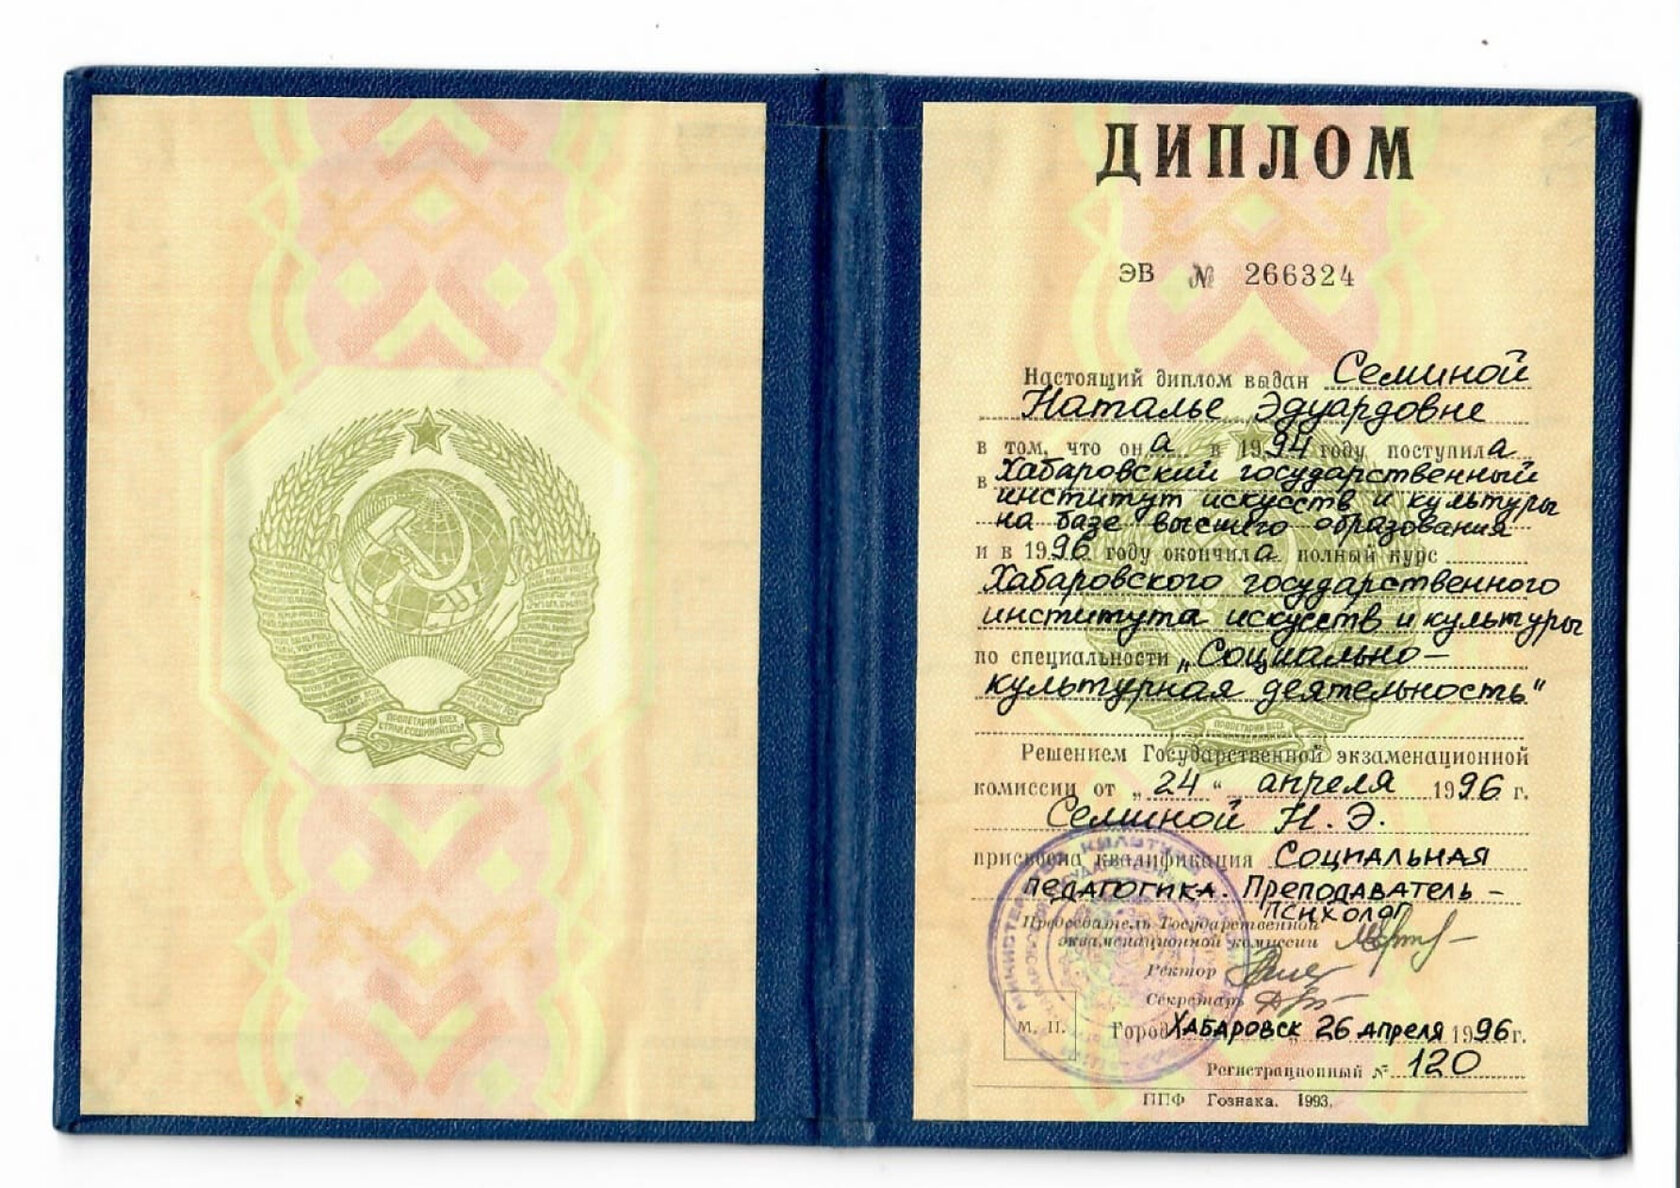 ПРОЛЕТАРИИ ВСЕХ
СТРАН, СОЕДИНЯЙТЕСЬ!
ДИПЛОМ
ЭВ № 266324
Настоящий диплом выдан Семиной
Наталье Эдуардовне
в том, что она в 1994 году поступила
в Хабаровский государственный
институт искусств и культуры
на базе высшего образования
и в 1996 году окончила полный курс
Хабаровского государственного
института искусств и культуры
по специальности „Социально-
культурная деятельность"
Решением Государственной экзаменационной
комиссии от „24“ апреля 1996 г.
Семиной Н. Э.
присвоена квалификация Социальная
педагогика. Преподаватель -
психолог
Председатель Государственной
экзаменационной комиссии
Ректор
Секретарь
М. П. Город Хабаровск 26 апреля 1996 г.
Регистрационный № 120
ППФ Гознака. 1993.